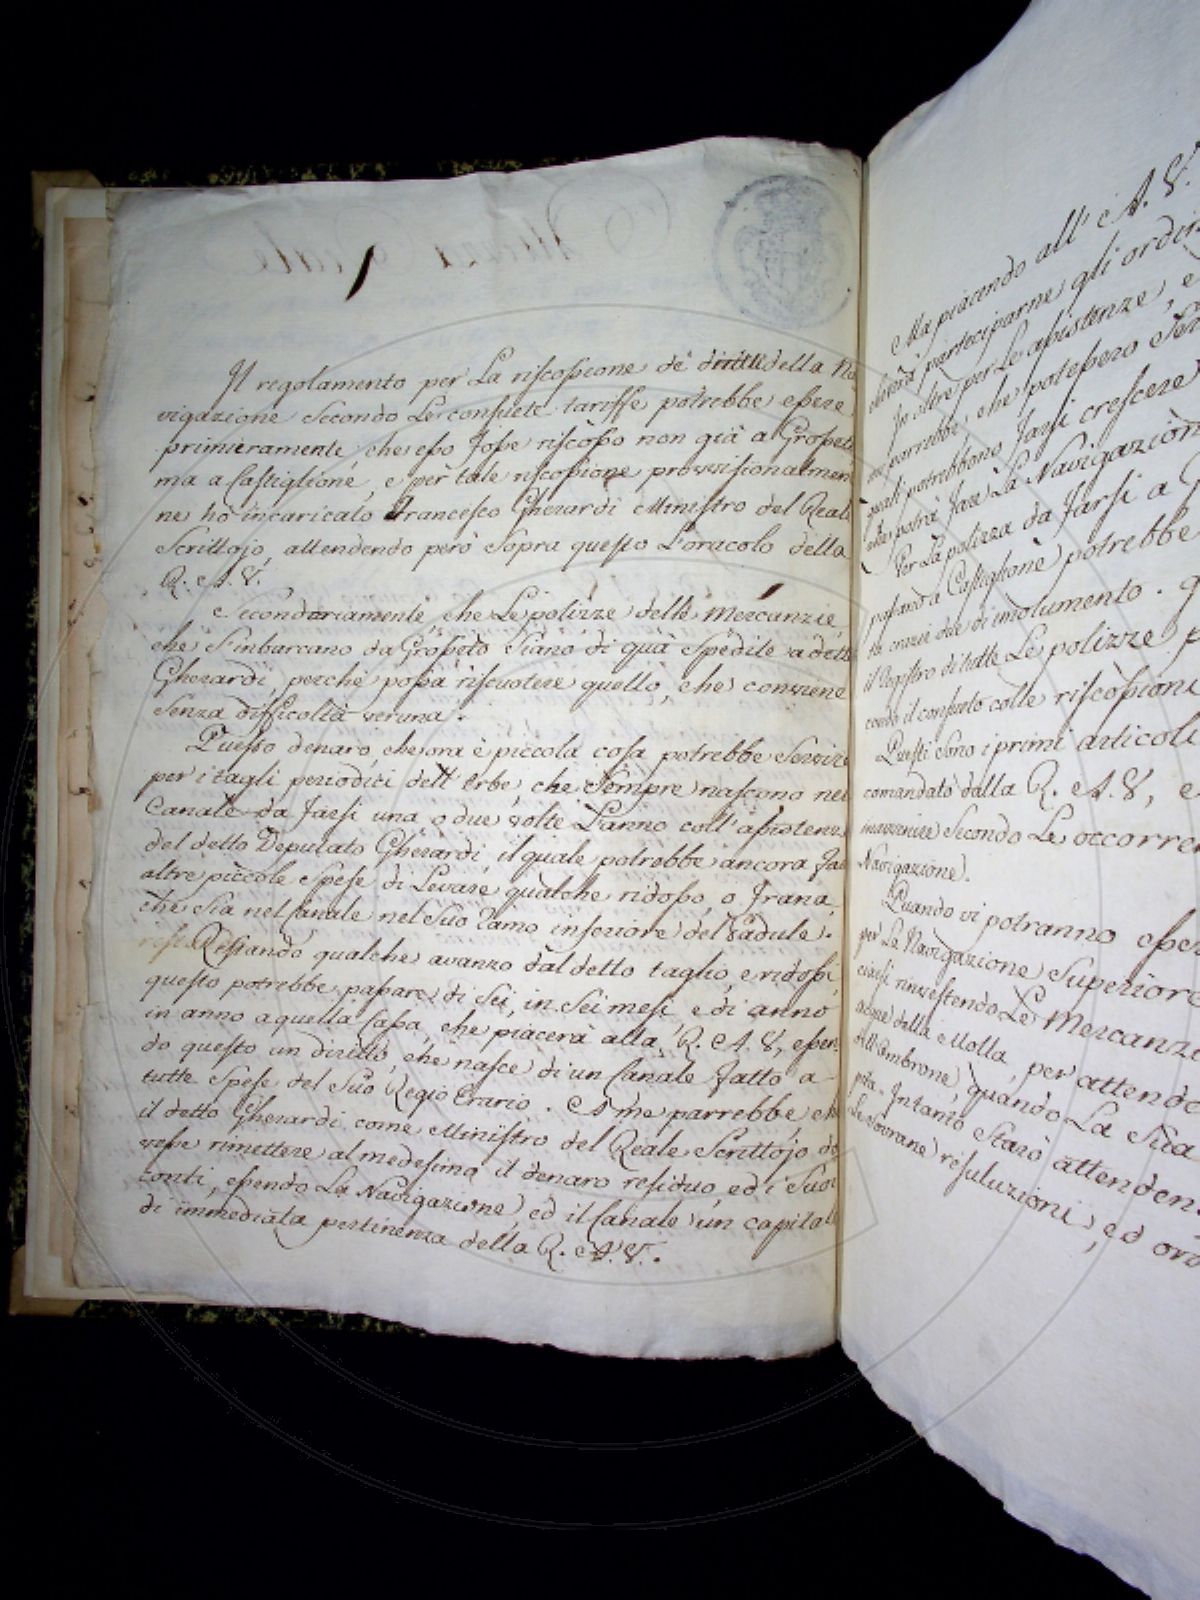 Il regolamento per La riscossione de' diritti della Na
vigazione Secondo Le consuete tariffe potrebbe essere
primieramente, che esso fosse riscosso non già a Grosseto
ma a Castiglione, e per tale riscossione provvisionalmen
ne hò incaricato Francesco Gherardi Ministro del Reale
Scrittojo, attendendo però Sopra questo L'oracolo della
R. A. V.
Secondariamente, che Le polizze delle Mercanzie
che S'inbarcano da Grosseto Siano di quà Spedite a detto
Gherardi, perchè possa riscuotere quello, che conviene
Senza difficoltà veruna.
Questo denaro, che ora è piccola cosa potrebbe Servire
per i tagli periodici dell' Erbe, che Sempre nascono nel
Canale da farsi una, o due volte L'anno coll' assistenza
del detto Deputato Gherardi, il quale potrebbe ancora far
altre piccole Spese di Levare qualche ridosso, o frana,
che Sia nel Canale nel Suo Ramo inferiore del Padule.
Restando qualche avanzo dal detto taglio, e ridossi,
questo potrebbe passare di Sei, in Sei mesi, e di anno
in anno a quella Cassa, che piacerà alla R. A. V., essen
do questo un diritto, che nasce di un Canale fatto a
tutte Spese del Suo Regio Erario. A me parrebbe, che
il detto Gherardi come Ministro del Reale Scrittojo do
vesse rimettere al medesimo il denaro residuo, ed i Suoi
Conti, essendo La Navigazione, ed il Canale un capitale
di immediata pertinenza della R. A. V.
Ma piacendo all' A. V.
parteciparne gli ordin
In oltre per Le assistenze, e
mi parrebbe, che potessero Ser
quali potrebbono farsi crescere
che potrà fare La Navigazion
Per La polizza da farsi a G
passand a Castiglione potrebbe
crazie due di emolumento.
il Registro di tutte Le polizze p
il consueto colle riscossioni
Questi Sono i primi articoli
comandato dalla R. A. V., e
inavvenire Secondo Le occorren
Navigazione.
Quando vi potranno esser
per La Navigazione Superiore
Le Mercanzie
acque della Molla, per attende
dell' Ombrone, quando La Sua
Intanto Starò attenden
Le Sovrane resuluzioni, ed ord